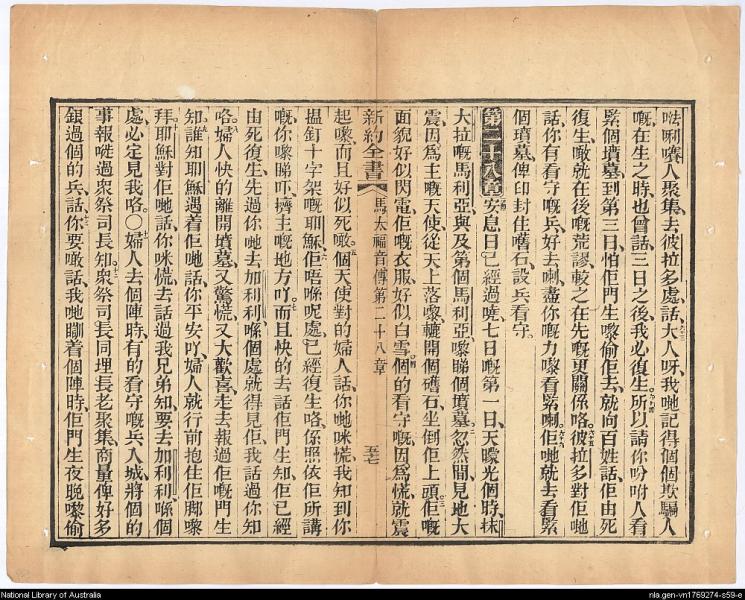 唎嚽人聚集去彼拉多處話大人呀我哋記得個個欺騙人
嘅在生之時也曾話三日之後我必復生所以請你吩咐人看
緊個墳墓到第三日怕佢門生嚟偷佢去就向百姓話佢由死
復生噉就在後嘅荒謬較之在先嘅更關係咯彼拉多對佢哋
話你有看守嘅兵好去喇盡你嘅力嚟看緊喇佢哋就去看緊
個墳墓俾印封住嚿石設兵看守
第二十八章 安息日已經過曉七日嘅第一日天曚光個時抹
大拉嘅馬利亞與及第個馬利亞嚟睇個墳墓忽然間見地大
震因爲主嘅天使從天上落嚟轆開個嚿石坐倒佢上頭佢嘅
面貌好似閃電佢嘅衣服好似白雪個的看守嘅因爲慌就震
新約全書 馬太福音傳第二十八章 五七
起嚟而且好似死噉個天使對的婦人話你哋咪慌我知到你
搵釘十字架嘅耶穌佢唔喺呢處已經復生咯係照依佢所講
嘅你嚟睇吓擠主嘅地方吖而且快的去話佢門生知佢已經
由死復生先過你哋去加利利喺個處就得見佢我話過你知
咯婦人快的離開墳墓又驚慌又大歡喜走去報過佢嘅門生
知誰知耶穌遇着佢哋話你平安吖婦人就行前抱住佢脚嚟
拜耶穌對佢哋話你咪慌去話過我兄弟知要去加利利喺個
處必定見我咯○婦人去個陣時有的看守嘅兵入城將個的
事報嘥過衆祭司長知衆祭司長同埋長老聚集商量俾好多
銀過個的兵話你要噉話我哋瞓着個陣時佢門生夜晚嚟偷
National Library of Australia
nla.gen-vn1769274-s59-e